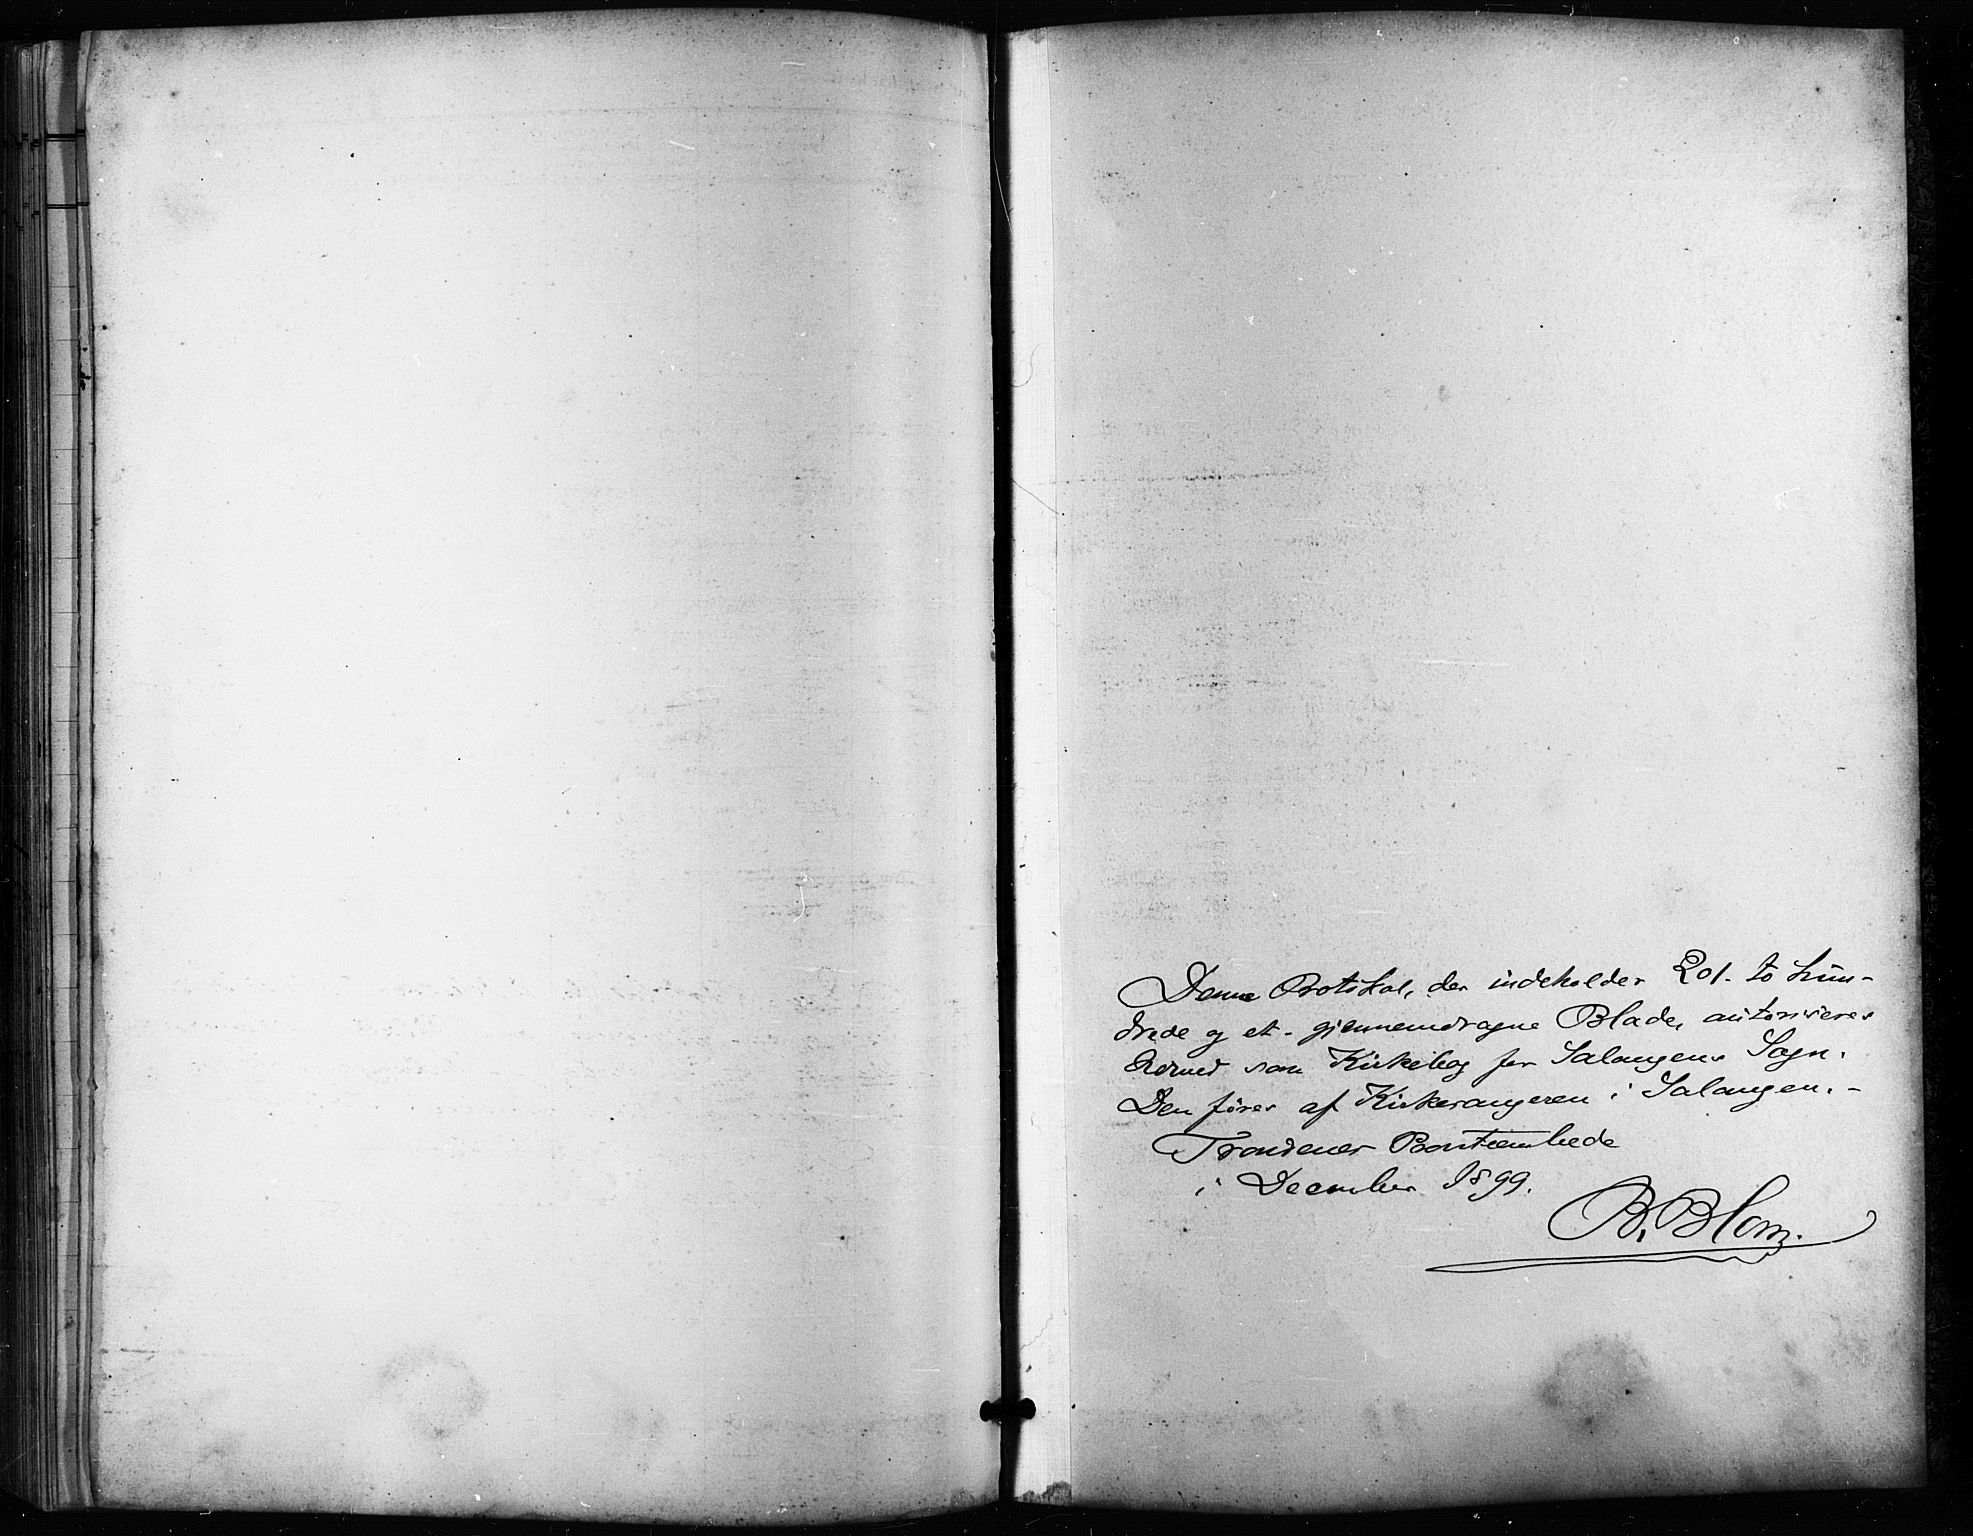 Denne Protokol, der indeholder 201 - to hun-
drede og et - gjennemdragne Blade, autoriseres
herved som Kirkebog for Salangens Sogn.
Den føres af Kirkesangeren i Salangen. -
Trondenes Provstiembede
i December 1899.
B. Blom.